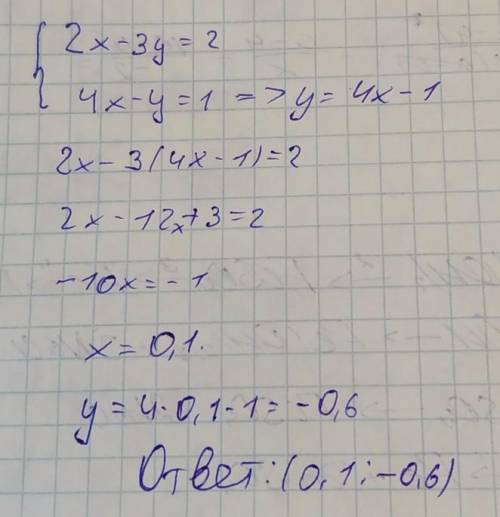 2x-3y=2
4x-y=1 => y=4x-1
2x-3(4x-1)=2
2x-12x+3=2
-10x=-1
x=0,1.
y=4·0,1-1=-0,6
Ответ:(0,1;-0,6)